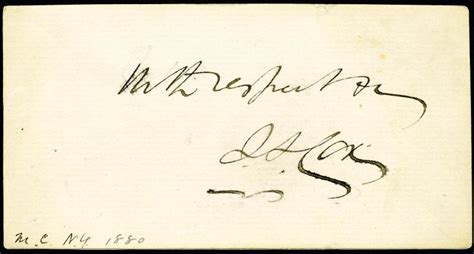 With respect &c
S. S. Cox
M.C. NY 1880